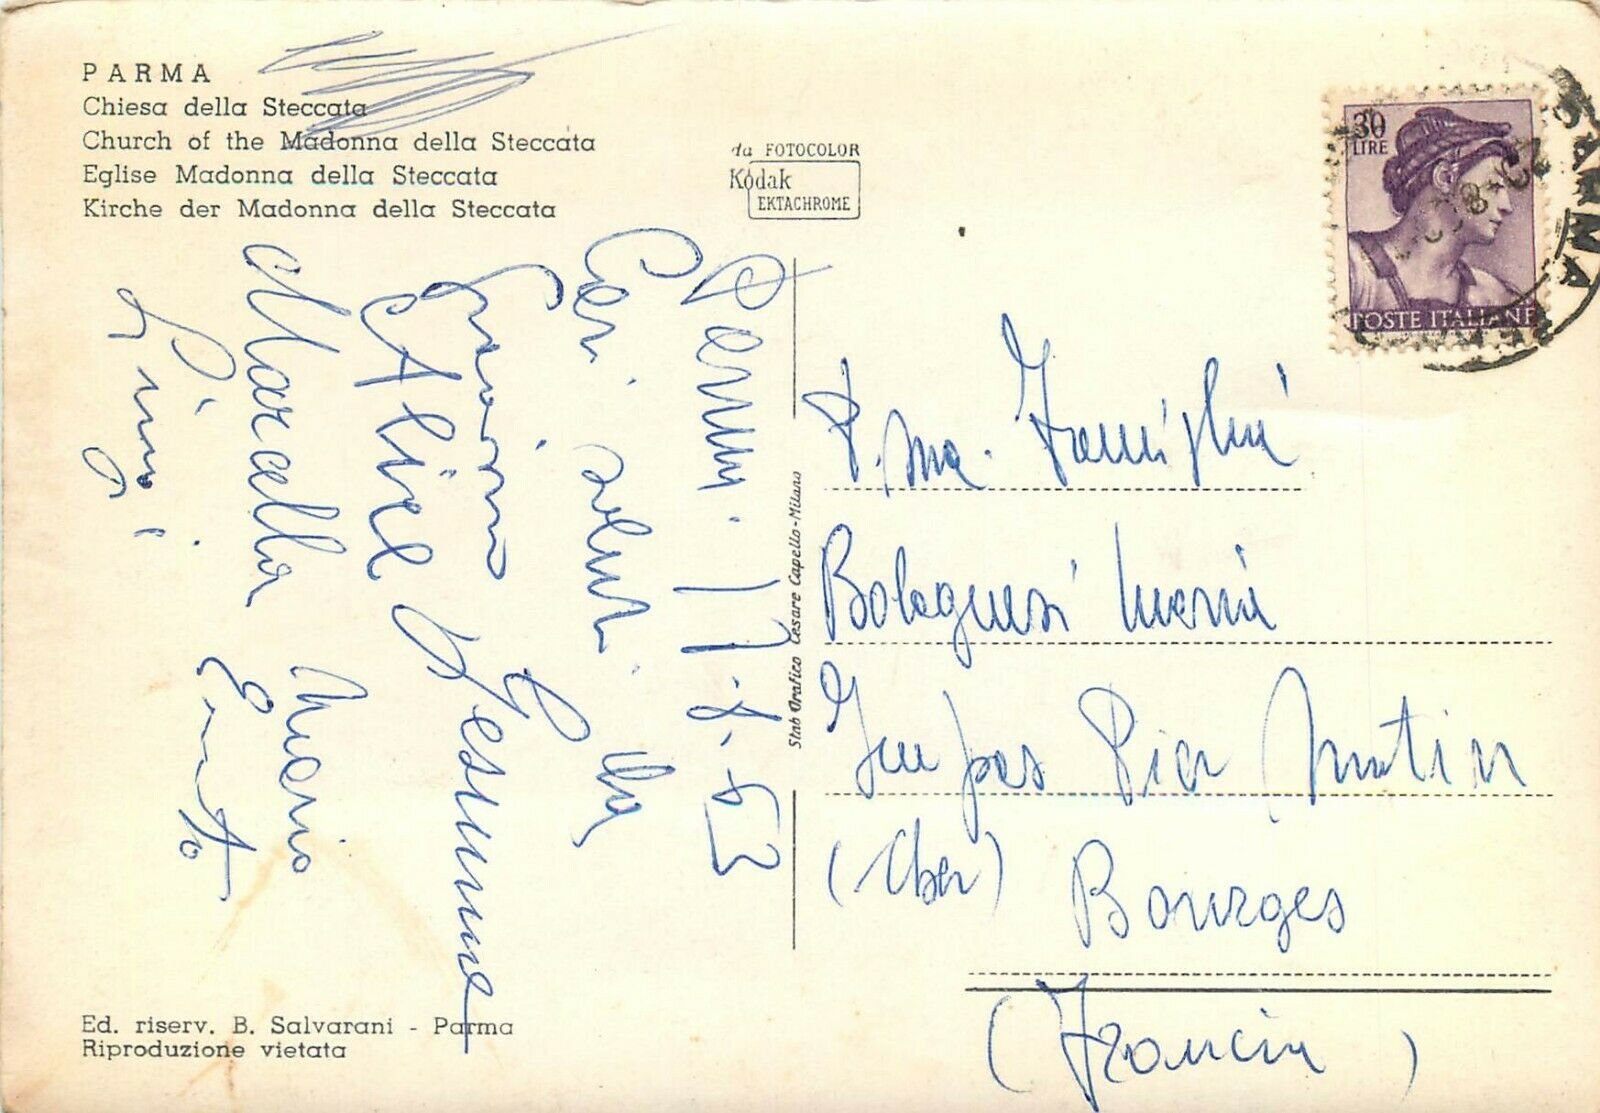 PARMA
Chiesa della Steccata
Church of the Madonna della Steccata
Eglise Madonna della Steccata
Kirche der Madonna della Steccata
da FOTOCOLOR
Kodak
EKTACHROME
30
LIRE
POSTE ITALIANE
PARMA
Parma 17.8.63
Cari saluti da
Alice
Marcella Maria
Luigi
Stab Grafico Cesare Capello - Milano
P.ma. Famiglia
Bolognesi Maria
Impas Pier
(Cher) Bourges
(Francia)
Ed. riserv. B. Salvarani - Parma
Riproduzione vietata